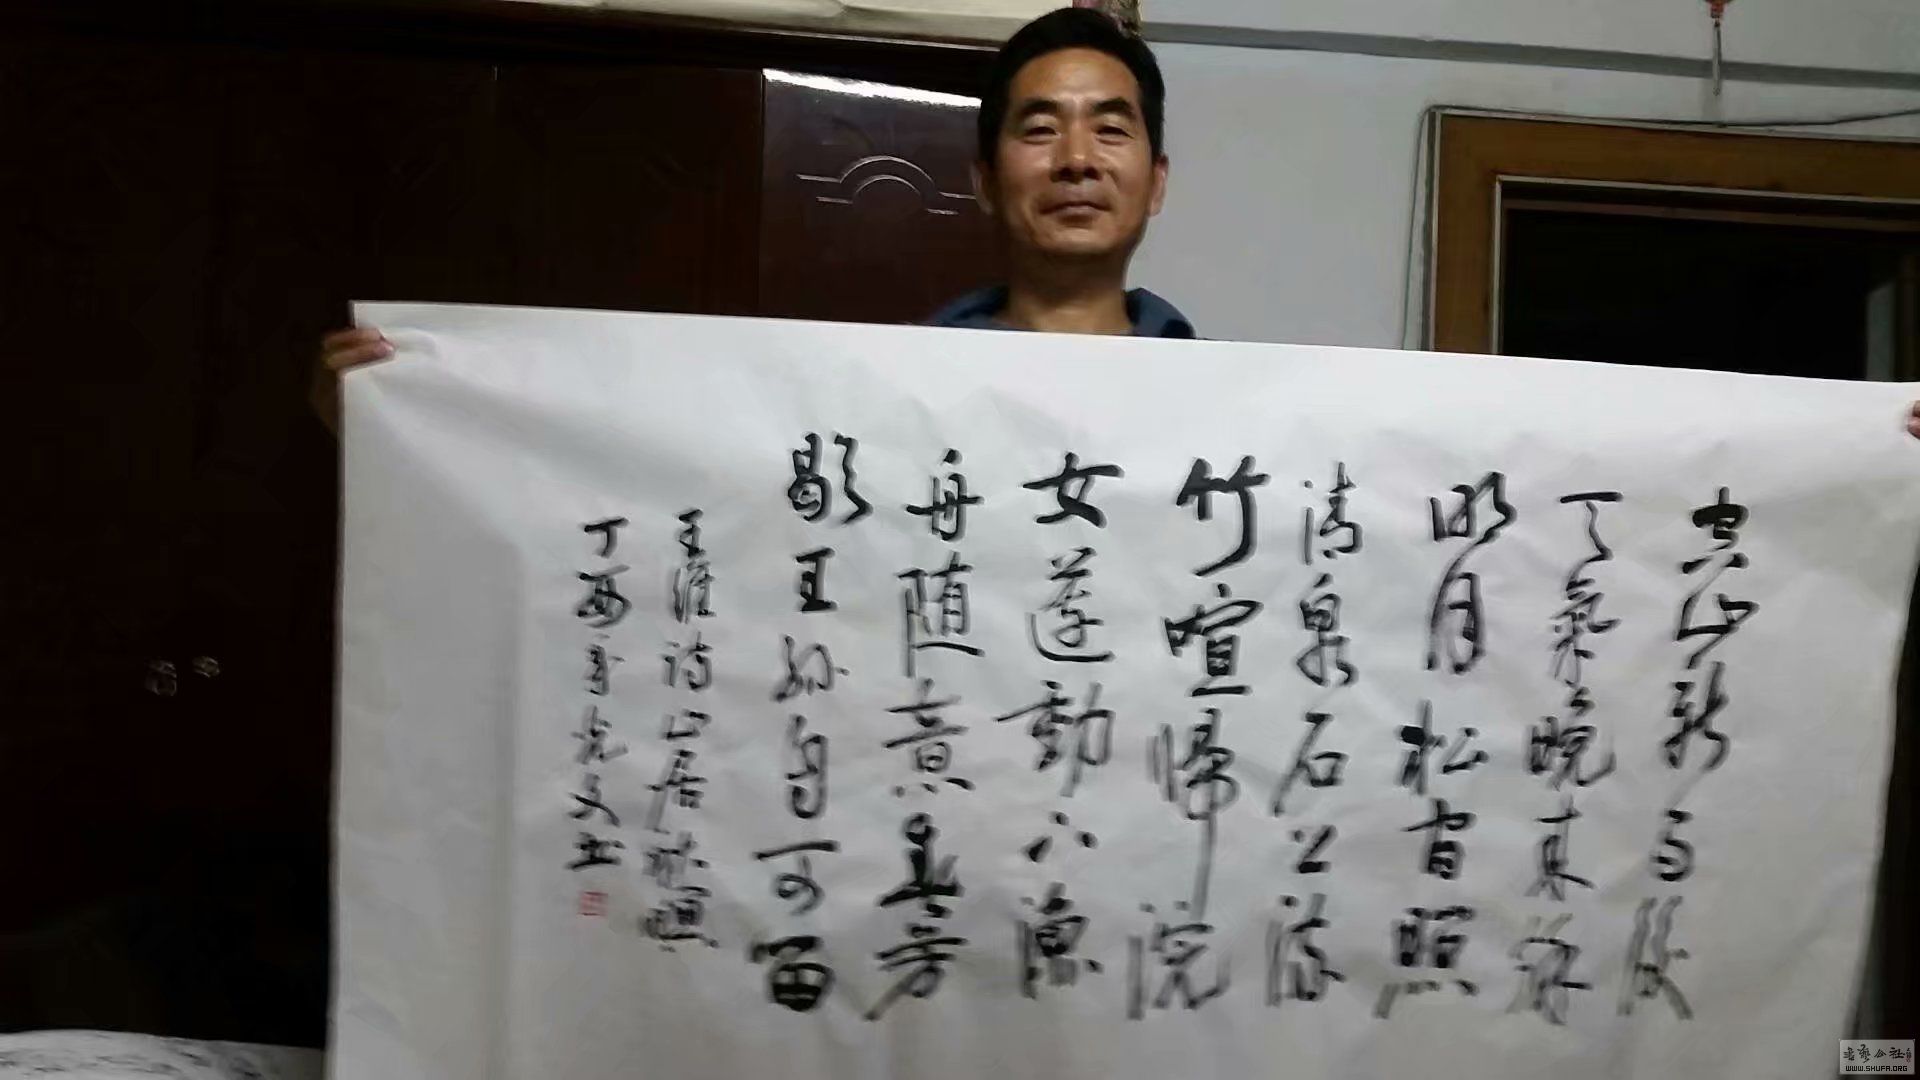 空山新雨後
天氣晚来秋
明月松间照
清泉石上流
竹喧帰浣
女莲動下漁
舟随意春芳
歇王孙自可留
王维诗山居秋暝
丁酉年
书艺公社
WWW.SHUFA.ORG